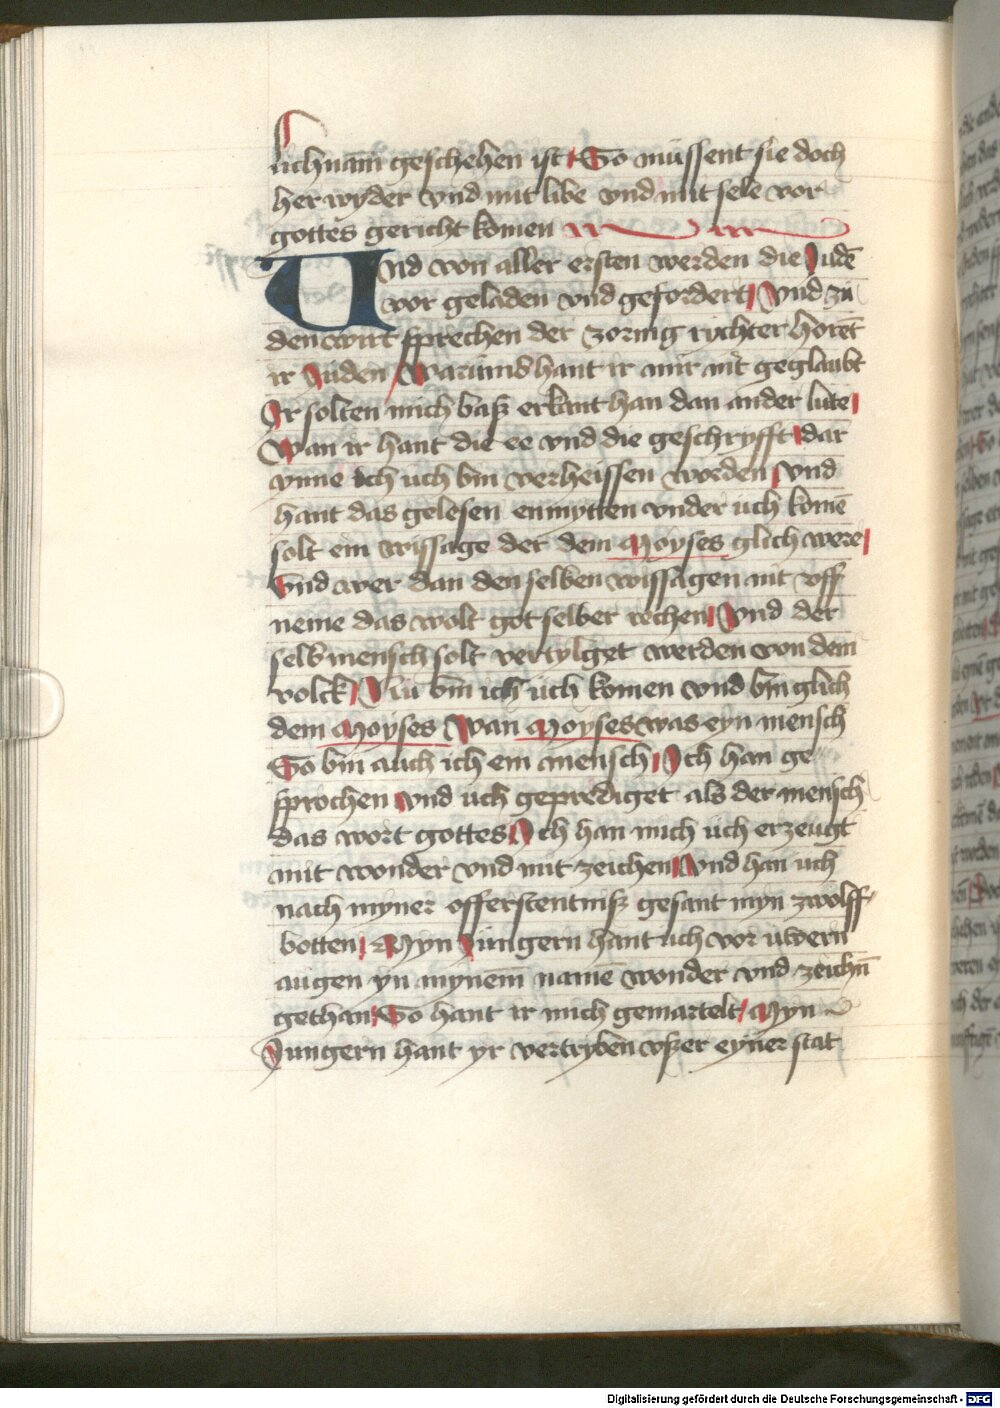 lichnam geschehen ist So müssent sie doch
her wyder vnd mit libe vnd mit sele vor
gottes gericht komen
Vnd von aller ersten werden die Judē
vor geladen vnd gefordert Vnd zu
den wirt sprechen der zornig richter horēt
ir Juden Warumb hant ir mir nit geglaubt
Ir solten mich basz erkant han dan ander lute
Wan ir hant die ee vnd die geschryfft dar
ynne ich uch bin verheissen worden Vnd
hant das gelesen enmytten vnder uch komē
solt ein wissage der dem Moyses glich were
Vnd wer dan den selben wissagen nit vff
neme das wolt got selber rechen Vnd der
selb mensch solt vertylget werden von dem
volck Nu bin ich uch komen vnd bin glich
dem Moyses Wan Moyses was eyn mensch
So bin auch ich ein mensch Ich han ge
sprochen vnd uch geprediget als der mensch
das wort gottes Ich han mich uch erzeugt
mit wonder vnd mit zeichen Vnd han uch
nach myner offerstentnisz gesant myn zwolff
botten Myn Jungern hant uch vor uwern
augen yn mynem namē wonder vnd zeichn̄
gethan So hant ir mich gemartelt Myn
Jungern hant yr vertryben vszer eyner stat
Digitalisierung gefördert durch die Deutsche Forschungsgemeinschaft - DFG